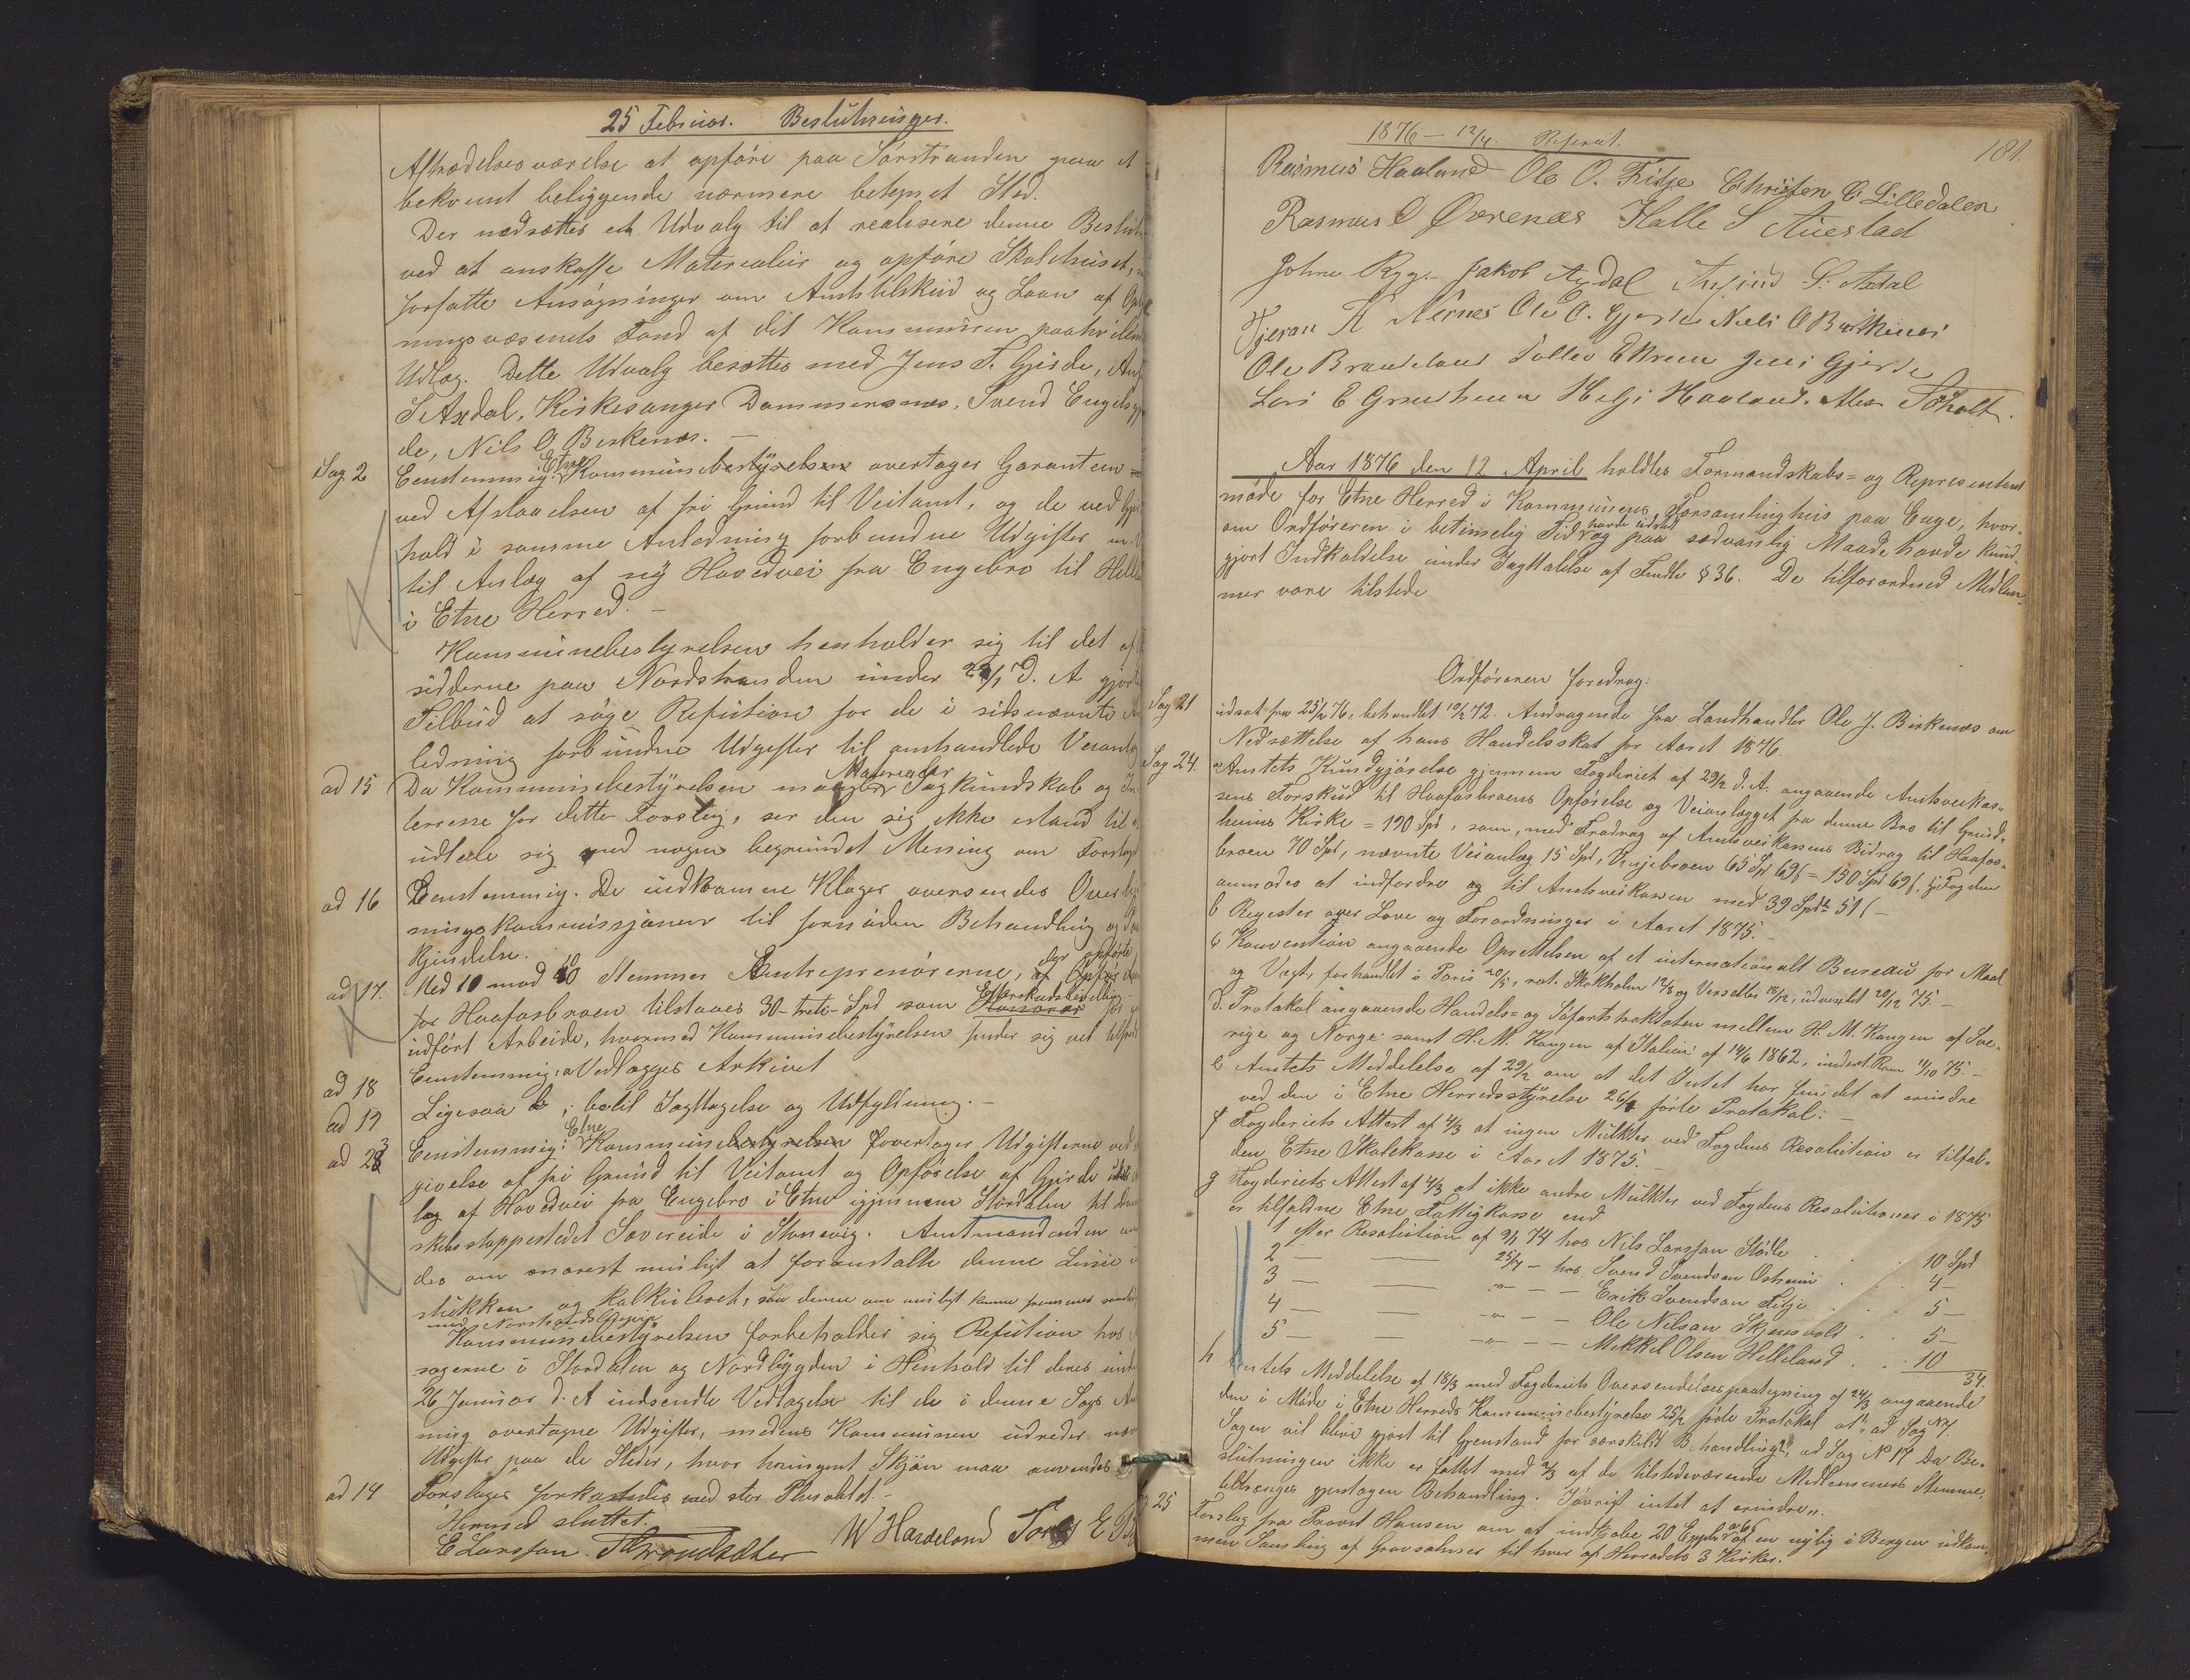 25 Februar. Beslutninger.
Aftrædelsesværelse at opføre paa Sørstranden paa et
bekvemt beliggende nærmere betegnet Sted.
Der nedsættes et Udvalg til at realisere denne
ved at anskaffe Materialier og opføre Skolehuset,
forfatte Ansøgninger om Amtstilskud og Laan af
ningsvæsenets Fond af det Kommunen
Udlæg. Dette Udvalg besættes med Jens T. Gjerde,
S Axdal, Kirkesanger Dommersnes, Svend
de, Nils O Birkenæs. —
Sag. 2 Eenstemmig: Etne Kommunebestyrelsen overtager Garantien
ved Afstaaelsen af fri Grund til Veitomt, og de ved
hold i samme Anledning forbundne Udgifter
til Anlæg af ny Hovedvei fra Engebro til
i Etne Herred. —
Kommunebestyrelsen henholder sig til det af
sidderne paa Nordstranden under d. A
Tilbud at søge Refution for de i sidsnævnte
ledning forbundne Udgifter til omhandlede
ad 15 Da Kommunebestyrelsen mangler Materialer Sagkundskab og
teresse for dette Forslag, ser den sig ikke istand til
udtale sig med nogen begrundet Mening om
ad 16 Eenstemmig. De indkomne Klager oversendes
ningskommissjonen til fornøden Behandling og
Kjendelse.
ad 17. Med 10 mod 10 Stemmer Entreprenørerne, der opførte
Haafosbroen tilstaaes 30-treti-Spd som Honorar for
udført Arbeide, hvormed Kommunebestyrelsen finder sig vel
ad 18 Eenstemmig: a Vedlægges Arkivet
ad 19 Ligesaa b; til Iagttagelse og Udfyldning. —
ad 23 Eenstemmig: Etne Kommunebestyrelsen overtager Udgifterne ved
givelse af fri Grund til Veitomt og Opførelse af Gjerde
læg af Hovedvei fra Engebro i Etne igjennem Stordalen til
skibsstoppestedet Sævereide i Skonevig. Amtmandenden
des om snarest muligt at foranstalte denne Linie
stukken og kalkuleret, saa denne om muligt kunne fremmes
Kommunebestyrelsen forbeholder sig Refution hos
sagerne i Stordalen og Nordbygden i Henhold til deres
26 Januar d. A indsendte Vedtagelse til de i denne Sags
ning overtagne Udgifter, medens Kommunen udreder
Udgifter paa de Steder, hvor tvungent Skjøn maa anvendes
ad 14 Forslaget forkastedes med stor Pluralitet. —
Hermed sluttet.
E Larssen. Throndsæter W Hardeland
1876 — 12/4. Referat. 181.
Rasmus Haaland Ole O. Fitje Christen C Lilledalen
Rasmus O Øvrenæs Halle S Auestad
Johne Rygg. Jakob Axdal S. Axdal
Fjeran K Nernes Ole O. Gjerde Niels O Birkenes
Ole Brandeland Tollev Ekrem Jens Gjerde
Lars E Grindheim Helje Haaland.
Aar 1876 den 12 April holdtes Formandskabs- og Representant
møde for Etne Herred i Kommunens Forsamlinghus paa Enge, hvor-
om Ordføreren i betimelig Tid havde udsted og paa sædvanlig Maade havde kund-
gjort Indkaldelse under Iagttalelse af Fmdl. § 36. De tilforordned Medlem-
mer vare tilstede
Ordføreren foredrog:
Sag 21 udsat fra 25/2 76, behandlet 10/2 72. Andragende fra Landhandler Ole J. Birkenæs om
Nedsættelse af hans Handelsskat for Aaret 1876.
Sag 24. a Amtets Kundgjørelse gjennem Fogderiet af 29/2 d. A. angaaende Amtsveikas-
sens Forskud til Haafosbroens Opførelse og Veianlægget fra denne Bro til Grind-
heims Kirke = 190 Spd, som, med Fradrag af Amtsveikassens Bidrag til Haafos-
broen 70 Spd, nævnte Veianlæg 15 Spd, 65 Spd 69 ſ = 150 Spd 69 ſ, Fogden
anmodes at indfordre og til Amtsveikassen med 39 Spd 51 ſ —
b Register over Love og Forordninger i Aaret 1875. —
c Konvention angaaende Oprettelsen af et internationalt Bureau for Maal
og Vægt, forhandlet i Paris 20/5, rat. Stokholm 12/8 og Versailles 18/12, udvexlet 20/12 75. —
d. Protokol angaaende Handels- og Søfartstraktaten mellem H. M. Kongen af Sve-
rige og Norge samt H. M. Kongen af Italien af 14/6 1862, undert. Rom 11/10 75. —
e Amtets Meddelelse af 29/2 om at det Intet har fundet at erindre
ved den i Etne Herredsstyrelse 26/1 førte Protokol. —
f Fogderiets Attest af 4/3 at ingen Mulkter ved Fogdens Resolution er tilfal-
den Etne Skolekasse i Aaret 1875. —
g Fogderiets Attest af 4/3 at ikke andre Mulkter ved Fogdens Resolutioner i 1875
er tilfaldne Etne Fattigkasse end
1 efter Resolution af 9/1 74 hos Nils Larssen Støile . . 10 Spd
2 — — 25/7 — hos Svend Svendsen Østreim . . 4 —
3 — — „ — — Erik Svendsen Fitje . . 5 —
4 — — „ — — Ole Nilsen Skjensvold . . 5 —
5 — — „ — — Mikkel Olsen Helleland . . 10
34.
h Amtets Meddelelse af 18/3 med Fogderiets Oversendelsespaategning af 24/3 angaaende
den i Møde i Etne Herreds Kommunebestyrelse 25/2 førte Protokol at "ad Sag N 1.
Sagen vil blive gjort til Gjenstand for særskildt Behandling", ad Sag No 17 Da Be-
slutningen ikke er fattet med 2/3 af de tilstedeværende Medlemmers Stemme,
tiltrænges gjentagen Behandling. Iøvrigt intet at erindre".
25 Forslag fra Provst Hansen om at indkjøbe 20 Expl. af en nylig i Bergen udkom-
men Samling af Gravsalmer til hver af Herredets 3 Kirker.